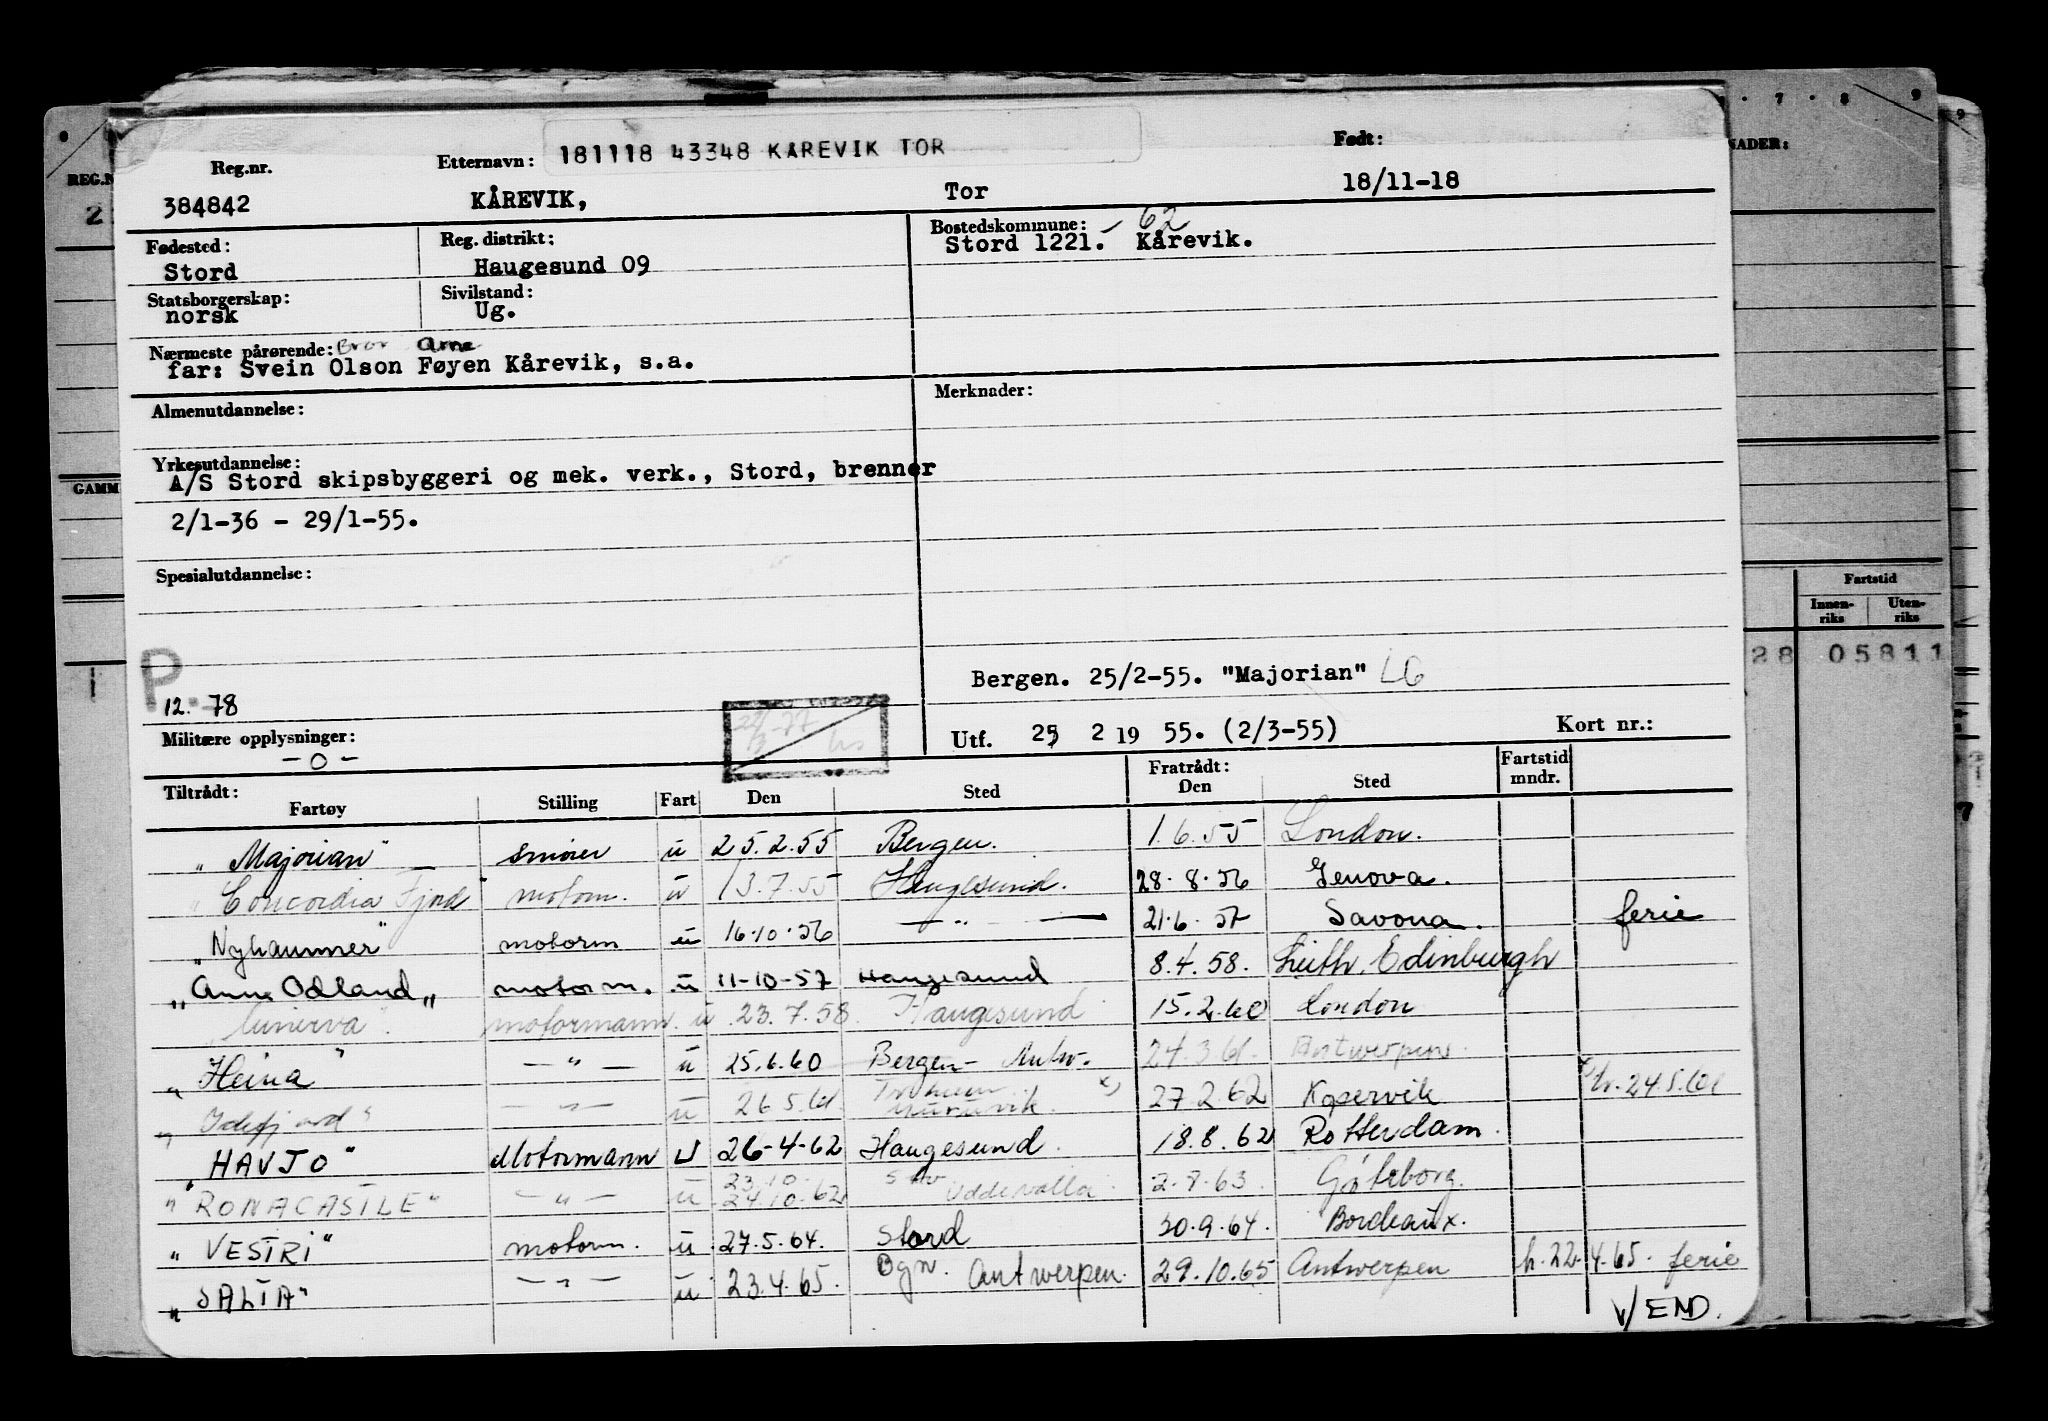 181118 43348 KÅREVIK TOR
Reg.nr. Etternavn: Født:
384842 KÅREVIK, Tor 18/11-18
Fødested: Reg. distrikt: Bostedskommune: 62
Stord Haugesund 09 Stord 1221. Kårevik.
Statsborgerskap: Sivilstand:
norsk Ug.
Nærmeste pårørende: Bror Arne
far: Svein Olson Føyen Kårevik, s.a.
Almenutdannelse: Merknader:
Yrkesutdannelse:
A/S Stord skipsbyggeri og mek. verk., Stord, brenner
2/1-36 - 29/1-55.
Spesialutdannelse:
Bergen. 25/2-55. "Majorian" LG
P.
12. 78
Militære opplysninger: Utf. 25 2 19 55. (2/3-55) Kort nr.:
- 0 -
Tiltrådt: Fratrådt: Fartstid
Fartøy Stilling Fart Den Sted Den Sted mndr.
"Majorian" smører u 25.2.55 Bergen. 1.6.55 London.
"Concordia Fjord" motorm. u 13.7.55 Haugesund. 28.8.56 Genova.
"Nyhammer" motorm u 16.10.56 — " — 21.6.57 Savona. ferie
"Anne Odland" motorm. u 11-10-57 Haugesund 8.4.58. Leith, Edinburgh
"Minerva". motormann. u 23.7.58 Haugesund 15.2.60 London
"Heina" — " — u 25.6.60 Bergen - Antw. 24.3.61. Antwerpen.
"Idefjord" — " — u 26.5.61. x) 27.2.62 Kopervik x) h. 24.5.61
"HAVJO" Motormann U 26-4-62 Haugesund. 18.8.62 Rotterdam.
"RONACASTLE" — " — u 23.10. 24.10.62 Uddevalla 2.8.63. Göteborg.
"VESTRI" motorm. u 27.5.64. Stord 30.9.64. Bordeaux.
"SALTA" — " — u 23.4.65. Bgn. Antwerpen. 29.10.65 Antwerpen h. 22.4.65. ferie
v/ END.
REG.N
2
GAMM
1
· 7 · 8 9
NADER:
Fartstid
Innen-riks Uten-riks
28 05811